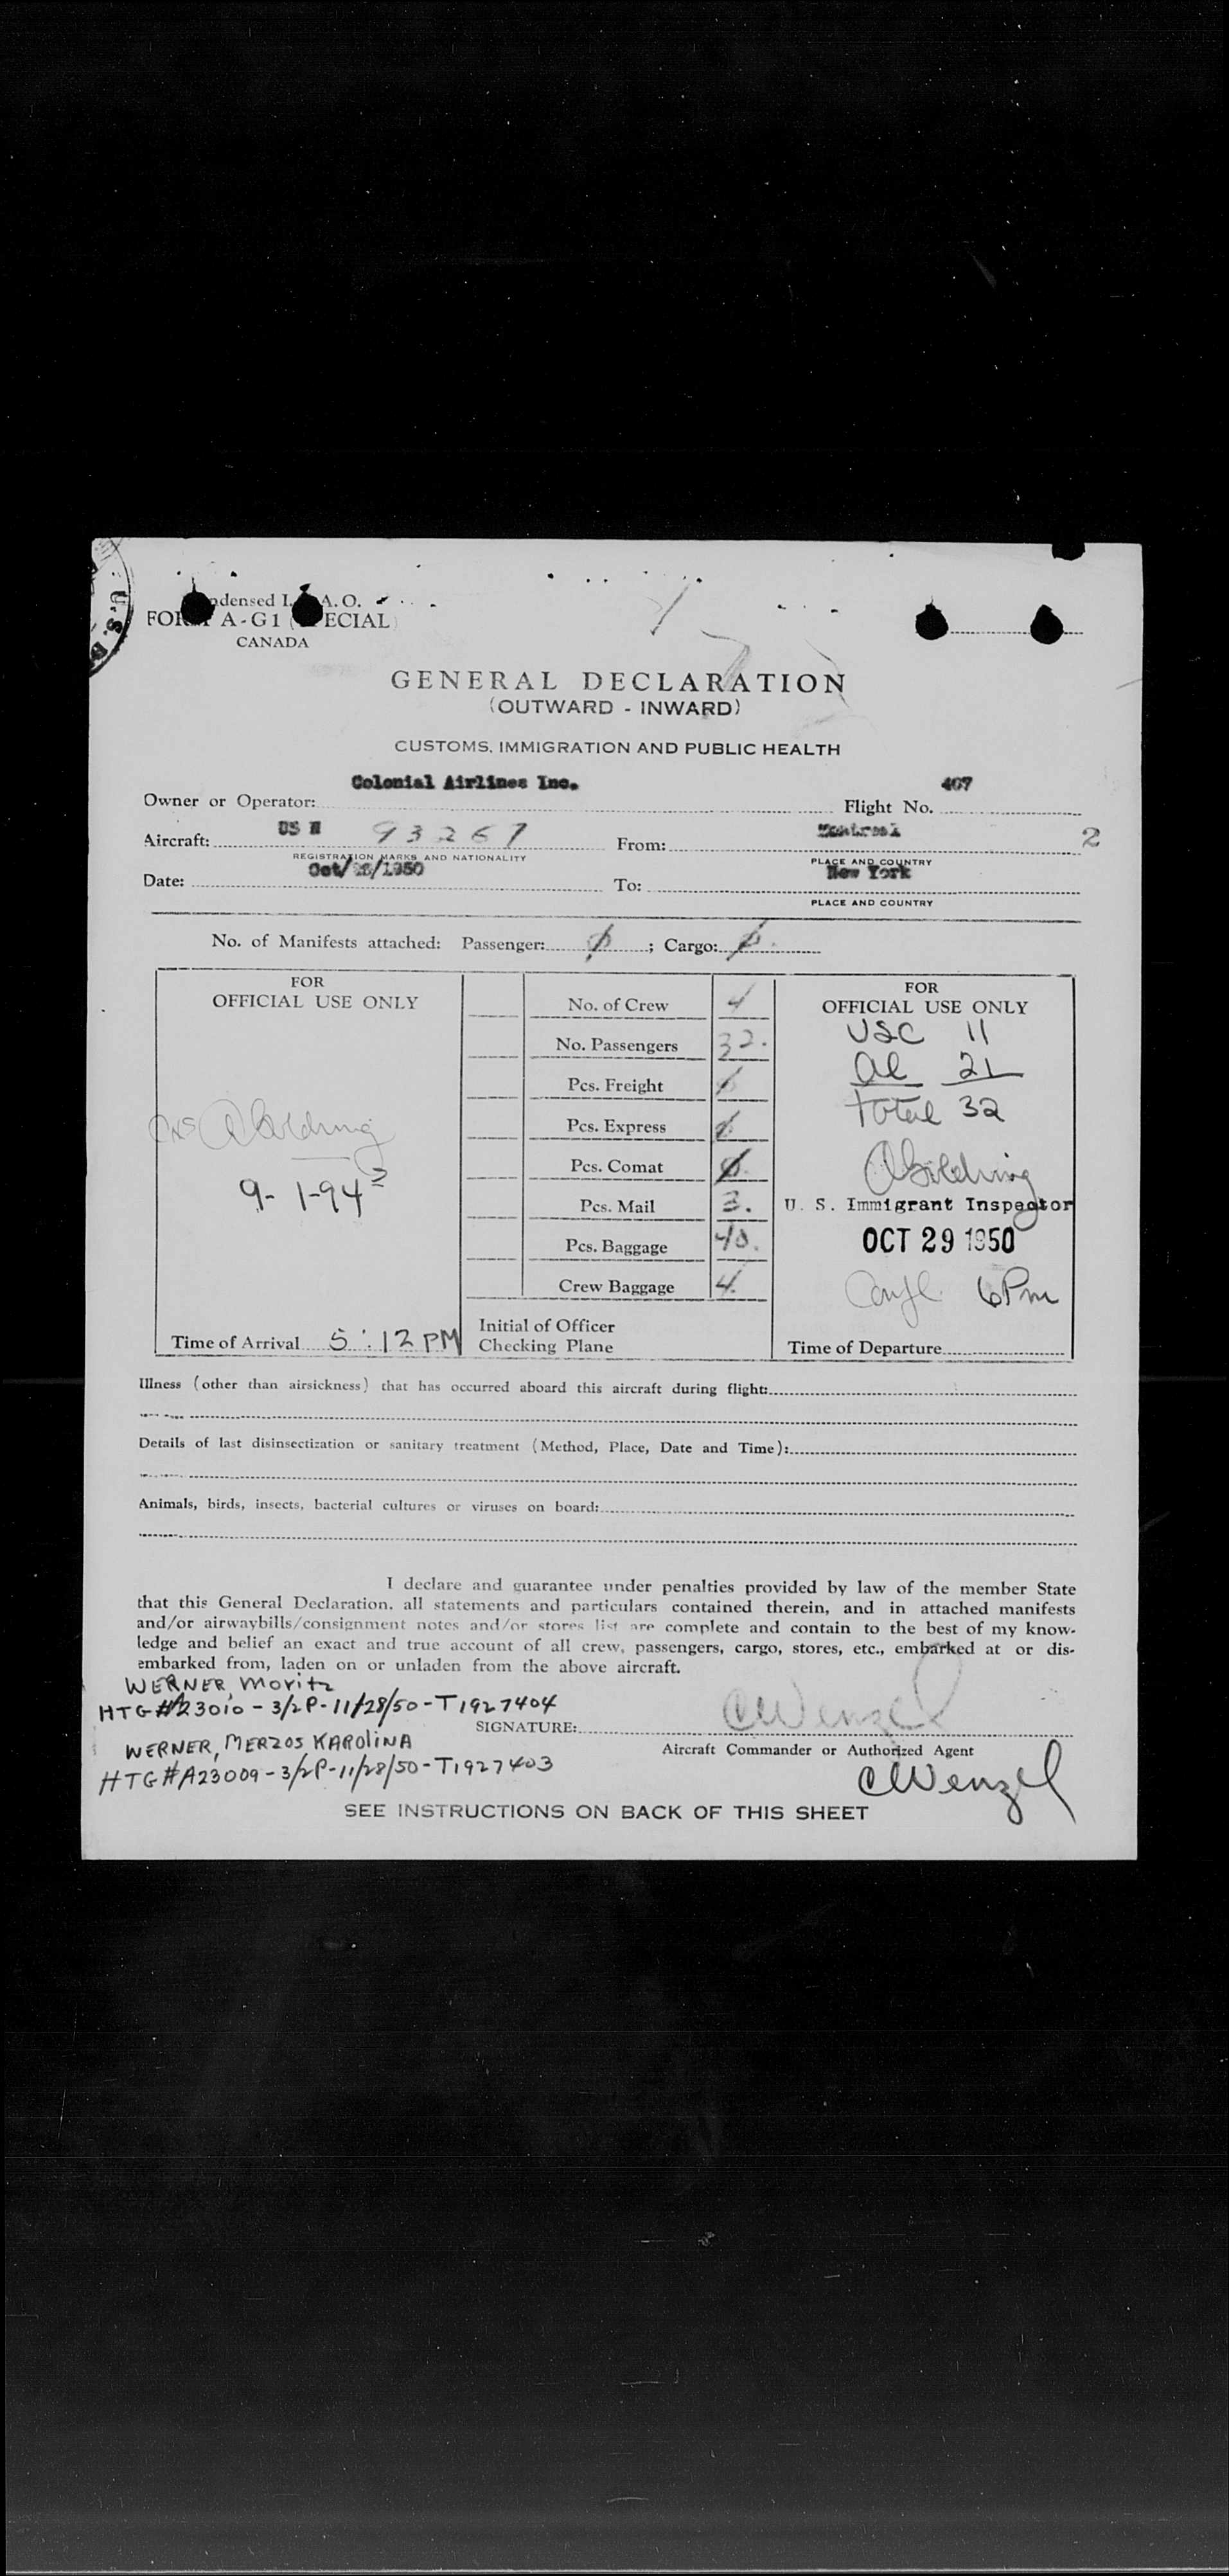 U.S.
ndensed I. A. O.
FOR A-G1 ( ECIAL)
CANADA
GENERAL DECLARATION
(OUTWARD - INWARD)
CUSTOMS, IMMIGRATION AND PUBLIC HEALTH
Owner or Operator: Colonial Airlines Inc. Flight No. 407
Aircraft: US N 93267 From: Montreal 2
REGISTRATION MARKS AND NATIONALITY PLACE AND COUNTRY
Date: Oct/ /1950 To: New York
PLACE AND COUNTRY
No. of Manifests attached: Passenger: ; Cargo:
FOR
OFFICIAL USE ONLY
9-1-94 2
Time of Arrival 5:12 PM
No. of Crew 4
No. Passengers 32.
Pcs. Freight
Pcs. Express
Pcs. Comat
Pcs. Mail 3.
Pcs. Baggage 40.
Crew Baggage 4.
Initial of Officer
Checking Plane
FOR
OFFICIAL USE ONLY
USC 11
al 21
total 32
U. S. Immigrant Inspector
OCT 29 1950
6 Pm
Time of Departure
Illness (other than airsickness) that has occurred aboard this aircraft during flight:
Details of last disinsectization or sanitary treatment (Method, Place, Date and Time):
Animals, birds, insects, bacterial cultures or viruses on board:
I declare and guarantee under penalties provided by law of the member State
that this General Declaration, all statements and particulars contained therein, and in attached manifests
and/or airwaybills/consignment notes and/or stores list are complete and contain to the best of my know-
ledge and belief an exact and true account of all crew, passengers, cargo, stores, etc., embarked at or dis-
embarked from, laden on or unladen from the above aircraft.
WERNER, Moritz
HTG#A23010-3/2P-11/28/50-T1927404
SIGNATURE: CWenzel
WERNER, MERZOS KAROLINA
Aircraft Commander or Authorized Agent
HTG#A23009-3/2P-11/28/50-T1927403
CWenzel
SEE INSTRUCTIONS ON BACK OF THIS SHEET